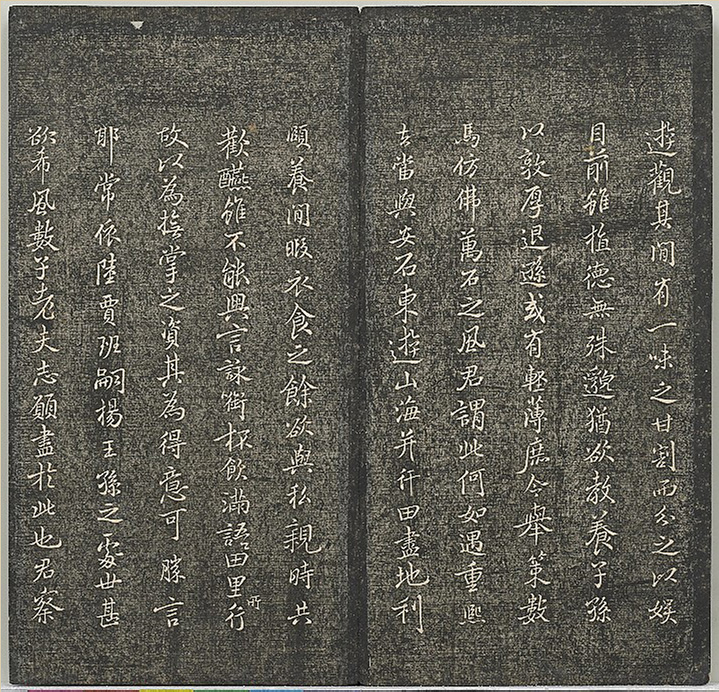 遊觀其間有一味之甘割而分之以娛
目前雖植德無殊邈猶欲教養子孫
以敦厚退遜或有輕薄庶令舉策數
馬仿佛萬石之風君謂此何如遇重熙
去當與安石東遊山海并行田盡地利
頤養閒暇衣食之餘欲與私親時共
歡醼雖不能興言詠銜杯飲滿語田里所行
故以為撫掌之資其為得意可勝言
耶常依陸賈班嗣楊王孫之處世甚
欲希風數子老夫志願盡於此也君察